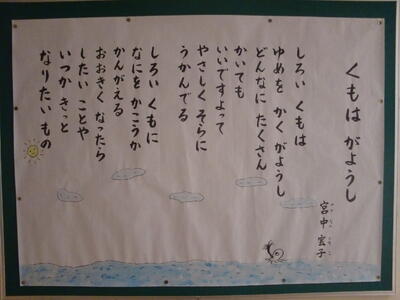 くもは がようし
宮中 雲子
しろい くもは
ゆめを かく がようし
どんなに たくさん
かいても
いいですよって
やさしく そらに
うかんでる
しろい くもに
なにを かこうか
かんがえる
おおきく なったら
したい ことや
いつか きっと
なりたい もの